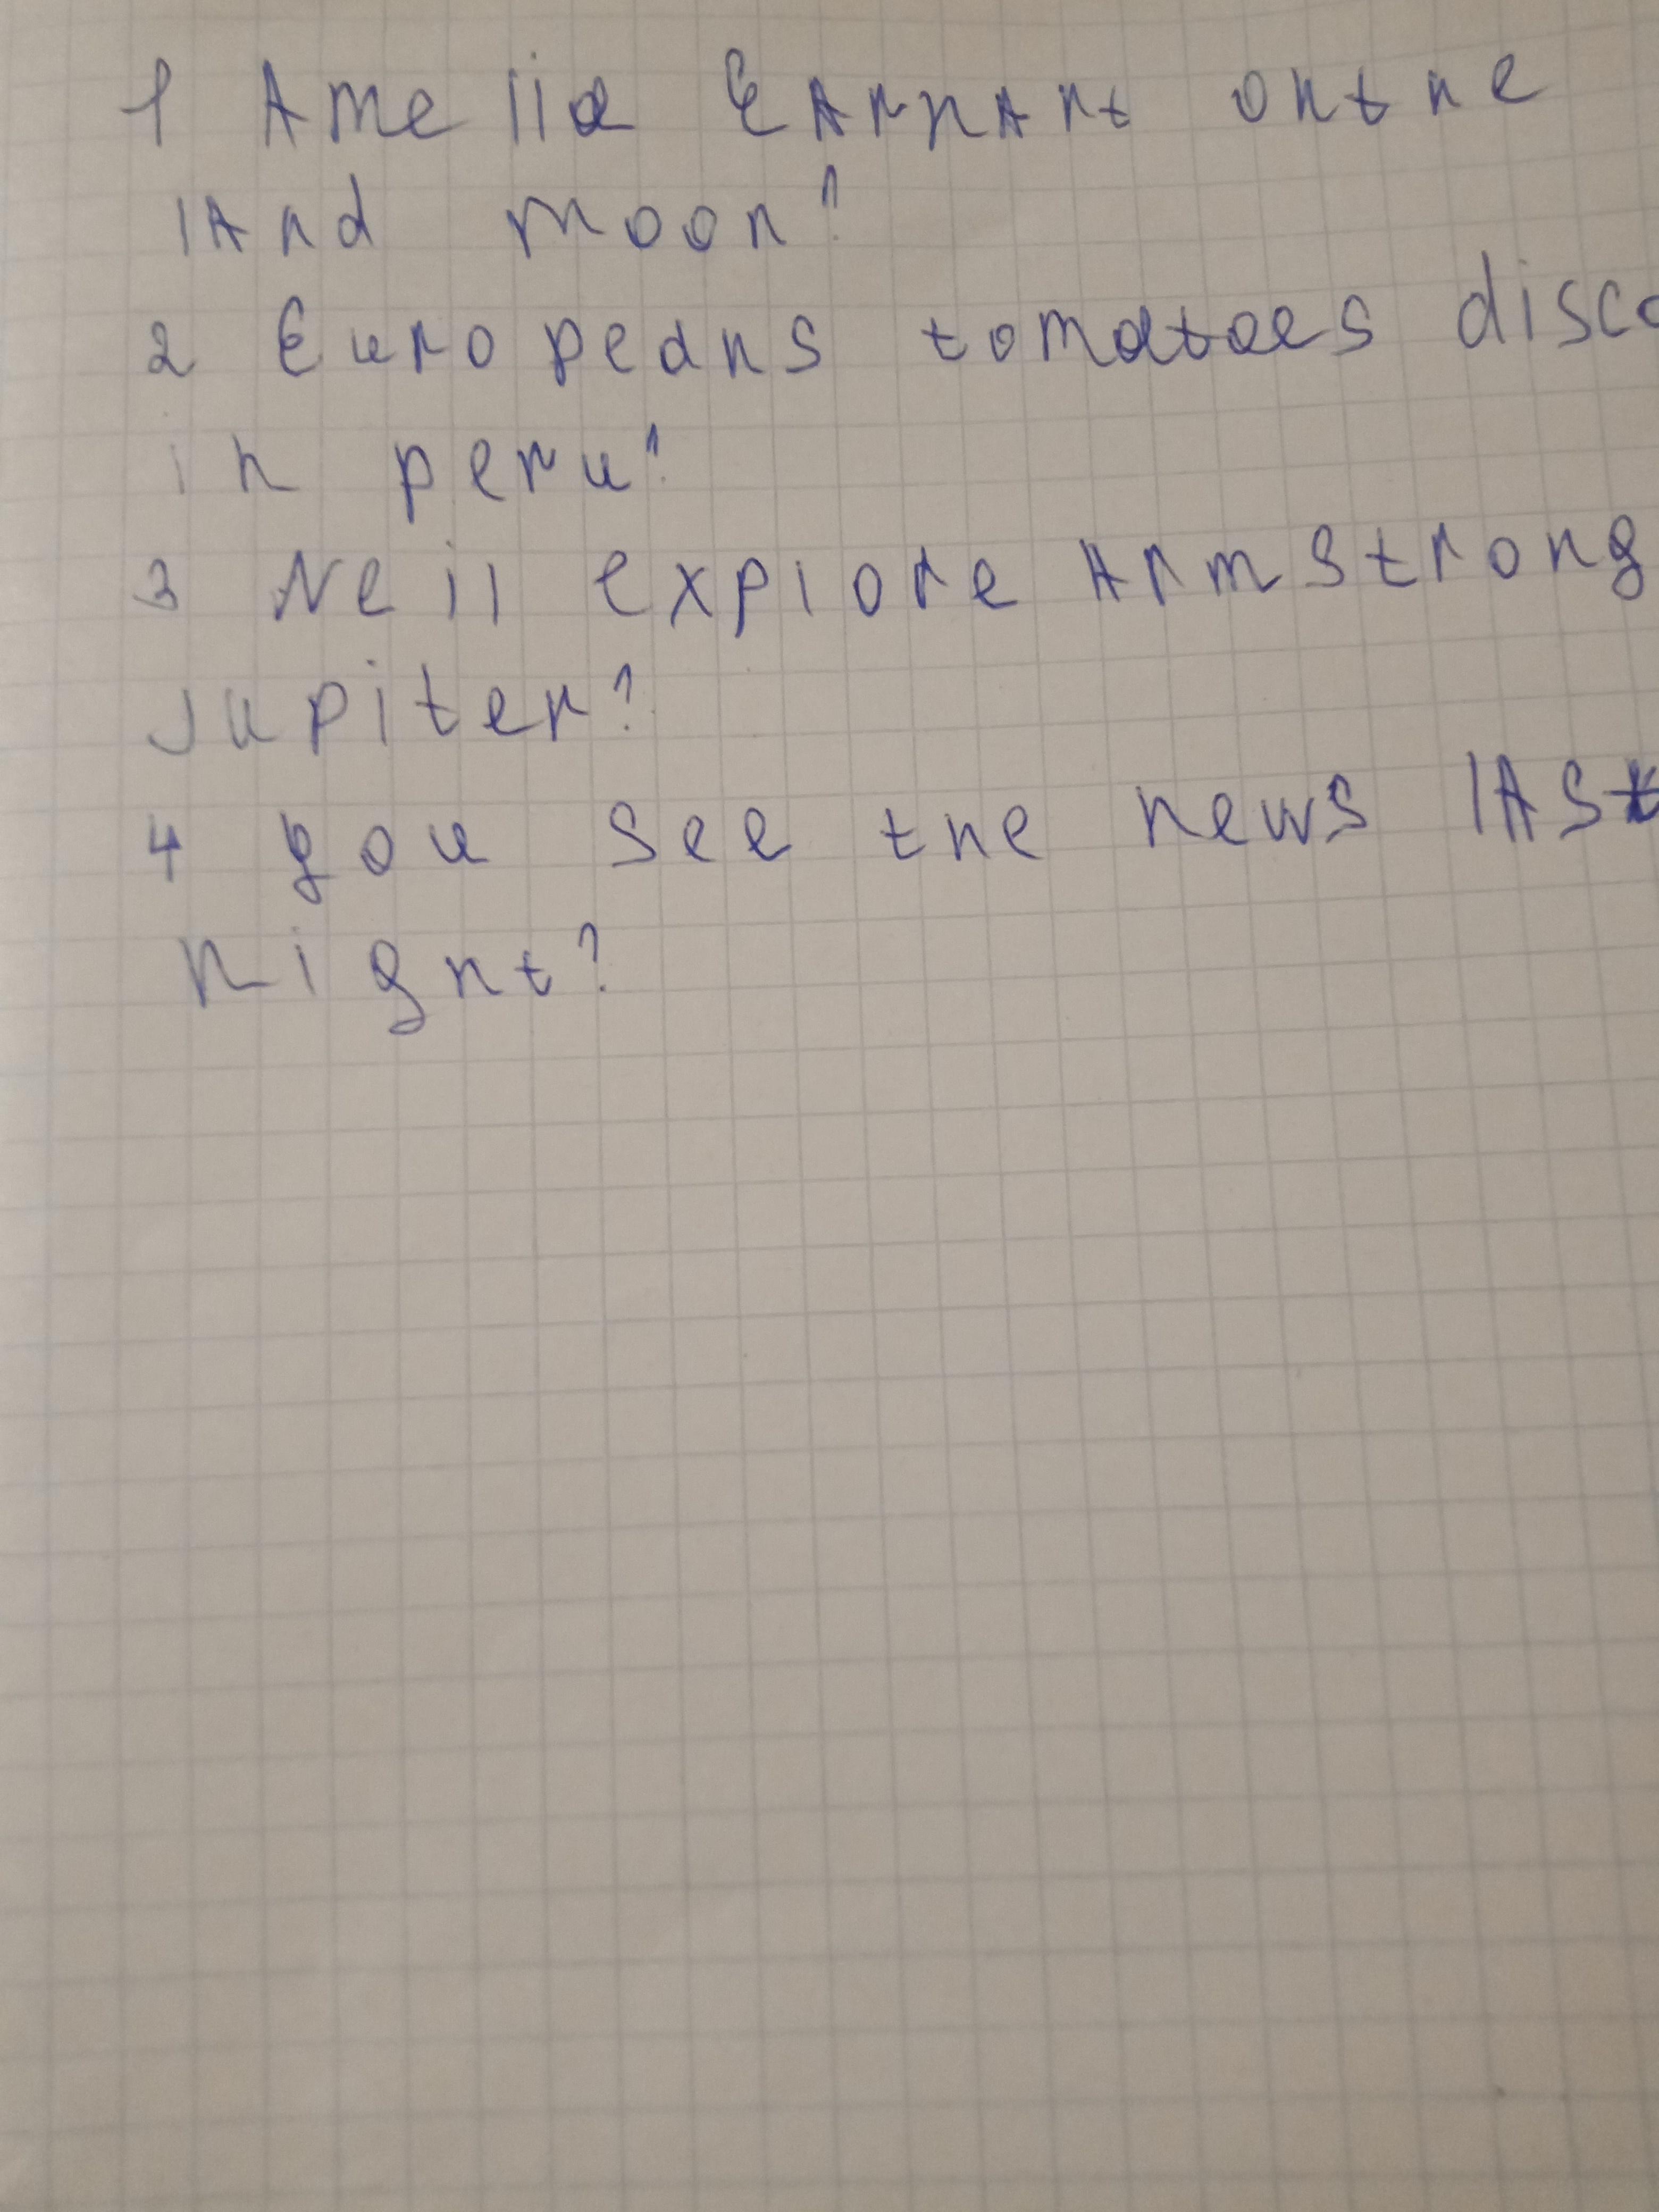 1 Amelia Earhart on the
land moon?
2 Europeans tomatoes disco
in peru?
3 Neil explore Armstrong
Jupiter?
4 you see the news last
night?